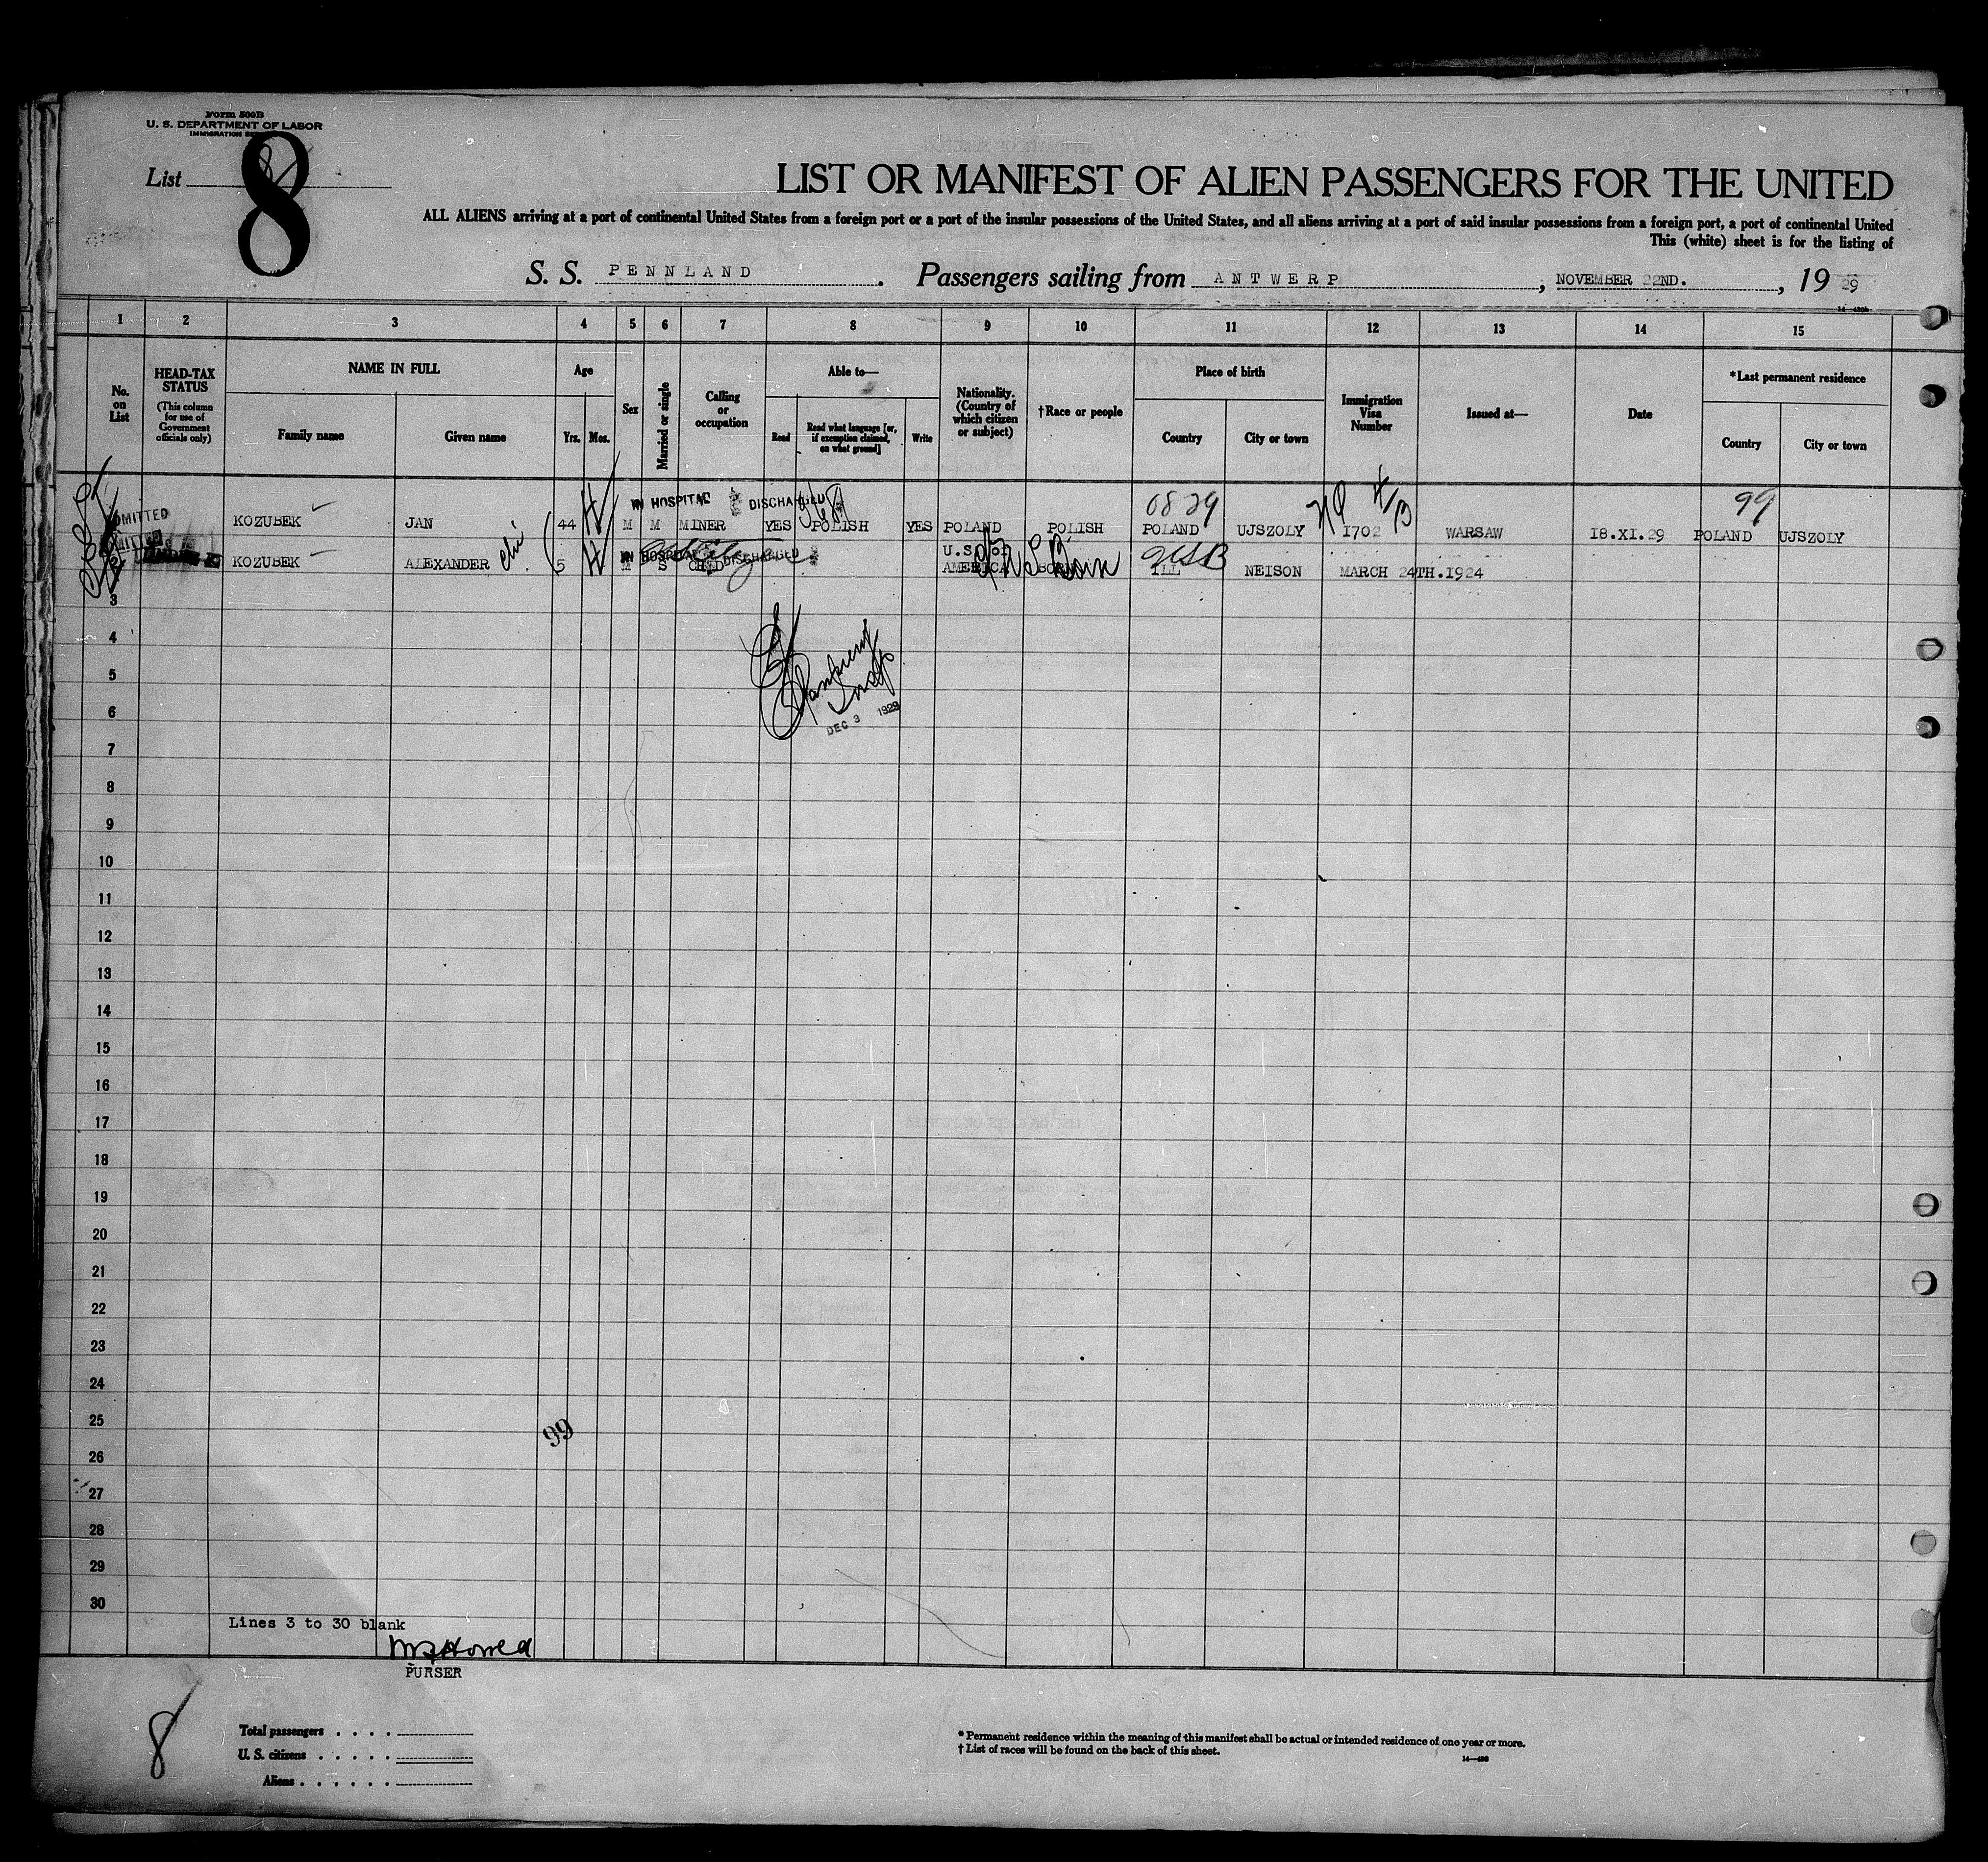 Form 500B
U. S. DEPARTMENT OF LABOR
IMMIGRATION
List 8
8
LIST OR MANIFEST OF ALIEN PASSENGERS FOR THE UNITED
ALL ALIENS arriving at a port of continental United States from a foreign port or a port of the insular possessions of the United States, and all aliens arriving at a port of said insular possessions from a foreign port, a port of continental United
This (white) sheet is for the listing of
S. S. PENNLAND. Passengers sailing from ANTWERP, NOVEMBER 22ND., 1929
1 2 3 4 5 6 7 8 9 10 11 12 13 14 15
No. on List
HEAD-TAX STATUS (This column for use of Government officials only)
NAME IN FULL
Family name Given name
Age
Yrs. Mos.
Sex
Married or single
Calling or occupation
Able to—
Read Read what language [or, if exemption claimed, on what ground] Write
Nationality. (Country of which citizen or subject)
†Race or people
Place of birth
Country City or town
Immigration Visa Number
Issued at—
Date
*Last permanent residence
Country City or town
IN HOSPITAL DISCHARGED
0829
99
ADMITTED KOZUBEK JAN 44 M M MINER YES POLISH YES POLAND POLISH POLAND UJSZOLY 1702 WARSAW 18.XI.29 POLAND UJSZOLY
IN HOSPITAL DISCHARGED
KOZUBEK ALEXANDER 5 M S CHILD U.S. of AMERICA BORN ILL NEISON MARCH 24TH.1924
USB
3
4
5
6
DEC 3 1929
7
8
9
10
11
12
13
14
15
16
17
18
19
20
21
22
23
24
25
99
26
27
28
29
30
Lines 3 to 30 blank
PURSER
8
Total passengers . . . .
U. S. citizens . . . . .
Aliens . . . . . .
* Permanent residence within the meaning of this manifest shall be actual or intended residence of one year or more.
† List of races will be found on the back of this sheet.